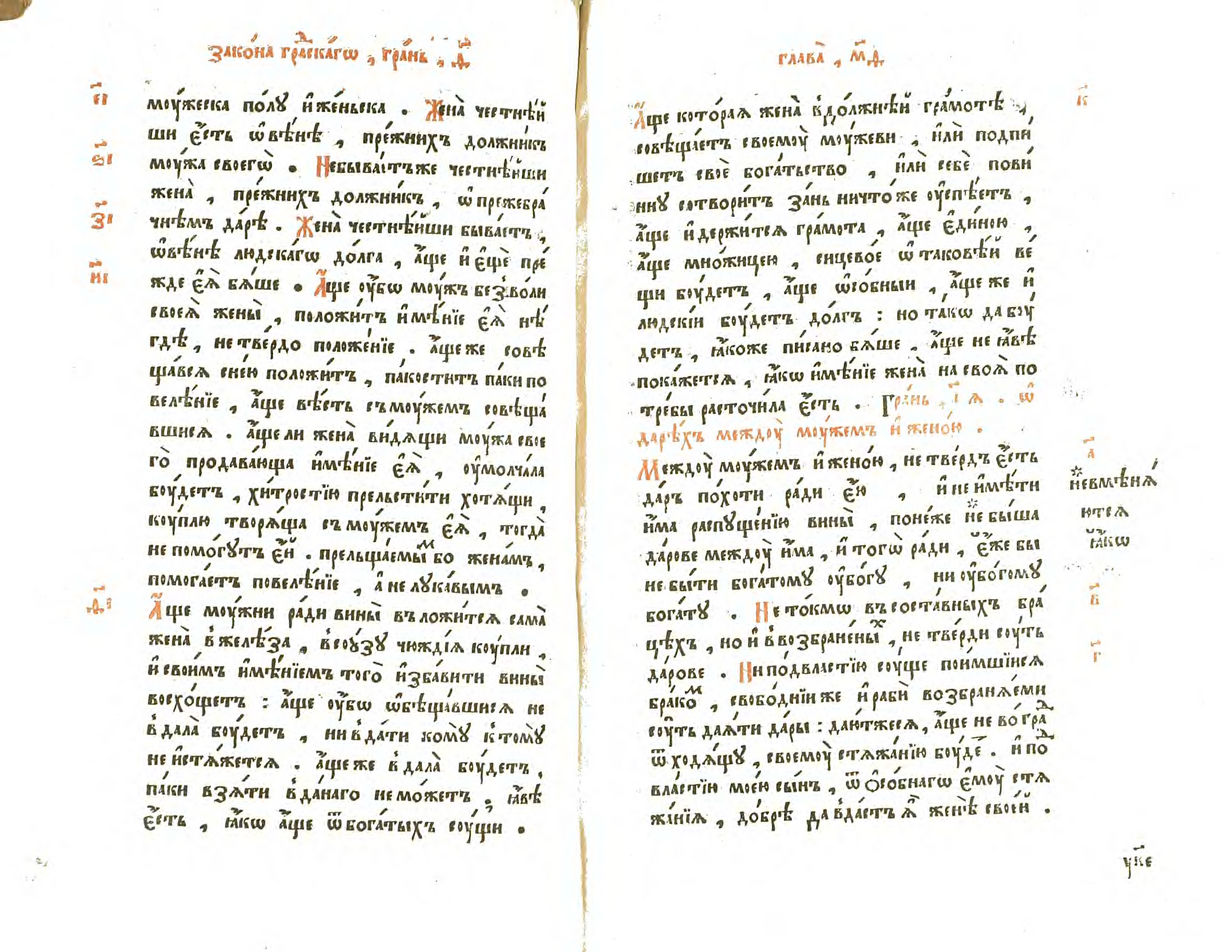 Зако́на гра́дскагѡ , гра́нь , д҃
є҃і
моу́жеска по́лу и҆ же́ньска . Жена̀ честнѣ́й
ши є҆́сть ѡ҆ вѣ́нѣ , пре́жнихъ должни́къ
ѕ҃і
моу́жа своегѡ̀ . Не быва́етъ же честнѣ́йши
жена̀ , пре́жнихъ должни́къ , ѡ҆ прежебра́
з҃і
чнѣмъ да́рѣ . Жена̀ честнѣ́йши быва́етъ ,
ѡ҆ вѣ́нѣ людска́гѡ до́лга , а҆́ще и҆ є҆щѐ пре́
и҃і
жде є҆ѧ̀ бѧ́ше . А҆́ще оу҆́бѡ моу́жъ без̾ во́ли
своеѧ̀ жены̀ , положи́тъ и҆мѣ́нїе є҆ѧ̀ нѣ́
гдѣ , не тве́рдо положе́нїе . а҆́ще же совѣ
ща́всѧ с нею положи́тъ , па́костит па́ки по
велѣ́нїе , а҆́ще вѣ́сть съ моу́жем совѣща́
вшисѧ . а҆́ще ли жена̀ ви́дѧщи моу́жа свое
го̀ продава́юща и҆мѣ́нїе є҆ѧ̀ , оу҆молча́ла
боу́детъ , хи́тростїю прельсти́ти хотѧ́щи ,
коу́плю творѧ́ща съ моу́жемъ є҆ѧ̀ , тогда̀
не помо́гутъ є҆́й . прельща́емы́м бо жена́м ,
помога́етъ повелѣ́нїе , а҆ не лука́вымъ .
д҃і
А҆́ще моу́жни ра́ди вины̀ въложи́тсѧ сама̀
жена̀ в̾ желѣ́за , в̾ сою́зу чю́ждїѧ коу́пли ,
и҆ свои́мъ и҆мѣ́нїемъ того̀ и҆зба́вити вины̀
восхо́щетъ : а҆́ще оу҆́бѡ ѡ҆бѣща́вшисѧ не
в̾дала̀ боу́детъ , ни в̾да́ти кому̀ к̾ тому̀
не и҆стѧ́жетсѧ . а҆́ще же в̾дала̀ боу́детъ ,
па́ки взѧ́ти в̾да́наго не мо́жетъ . ꙗ҆́вѣ
є҆́сть , ꙗ҆́кѡ а҆́ще ѿ бога́тыхъ соу́щи .
глава̀ , м҃д
к҃
А҆́ще кото́раѧ жена̀ в̾ до́лжнѣй гра́мотѣ ,
совѣща́етъ своемоу̀ моу́жеви , и҆лѝ подпи́
шетъ своѐ бога́тьство , и҆лѝ себѐ пови́
нну сотвори́тъ за́нь ничто́же оу҆спѣ́етъ ,
а҆́ще и҆ держи́тсѧ гра́мота , а҆́ще є҆ди́ною ,
а҆́ще мно́жицею , сицево́е ѡ҆ тако́вѣй ве́
щи боу́детъ , а҆́ще ѡ҆со́бныи , а҆́ще же и҆
людскі́й боу́детъ до́лгъ : но та́кѡ да боу́
детъ , ꙗ҆́коже пи́сано бѧ́ше . а҆́ще не ꙗ҆́вѣ
пока́жетсѧ , ꙗ҆́кѡ и҆мѣ́нїе жена̀ на своѧ̀ по
тре́бы расточи́ла є҆́сть . Гра́нь ѧ . ѡ҆
дарѣ́хъ междоу̀ моу́жемъ и҆ жено́ю .
а҃
Междоу̀ моу́жемъ и҆ жено́ю , не тве́рдъ є҆́сть
да́ръ по́хоти ра́ди є҆́ю , и҆ не и҆мѣ́ти
и҆́ма распуще́нїю вины̀ , поне́же не бы́ша
* не вмѣнѧ́
ютсѧ
ꙗ҆́кѡ
да́рове междоу̀ и҆́ма , и҆ тогѡ̀ ра́ди , є҆́же бы
не бы́ти бога́тому оу҆бо́гу , ни оу҆бо́гому
в҃
бога́ту . Не то́кмѡ въ соста́вныхъ бра́
цѣхъ , но и҆ в̾ возбране́ных , не тве́рди соу́ть
г҃
да́рове . Ни под вла́стїю соу́ще пои́мшїисѧ
бра́ком , свобо́днїи же и҆ рабѝ возбранѧ́еми
соу́ть даѧ́ти да́ры : даю́т же сѧ , а҆́ще не во гра́д
ѿходѧ́щу , своемоу̀ стѧжа́нїю боу́де . и҆ по
вла́стїю мое́ю сы́нъ , ѿ ѻ҆со́бнагѡ є҆моу̀ стѧ
жа́нїѧ , до́брѣ да в̾да́стъ ѧ҆̀ женѣ̀ свое́й .
у҆́же